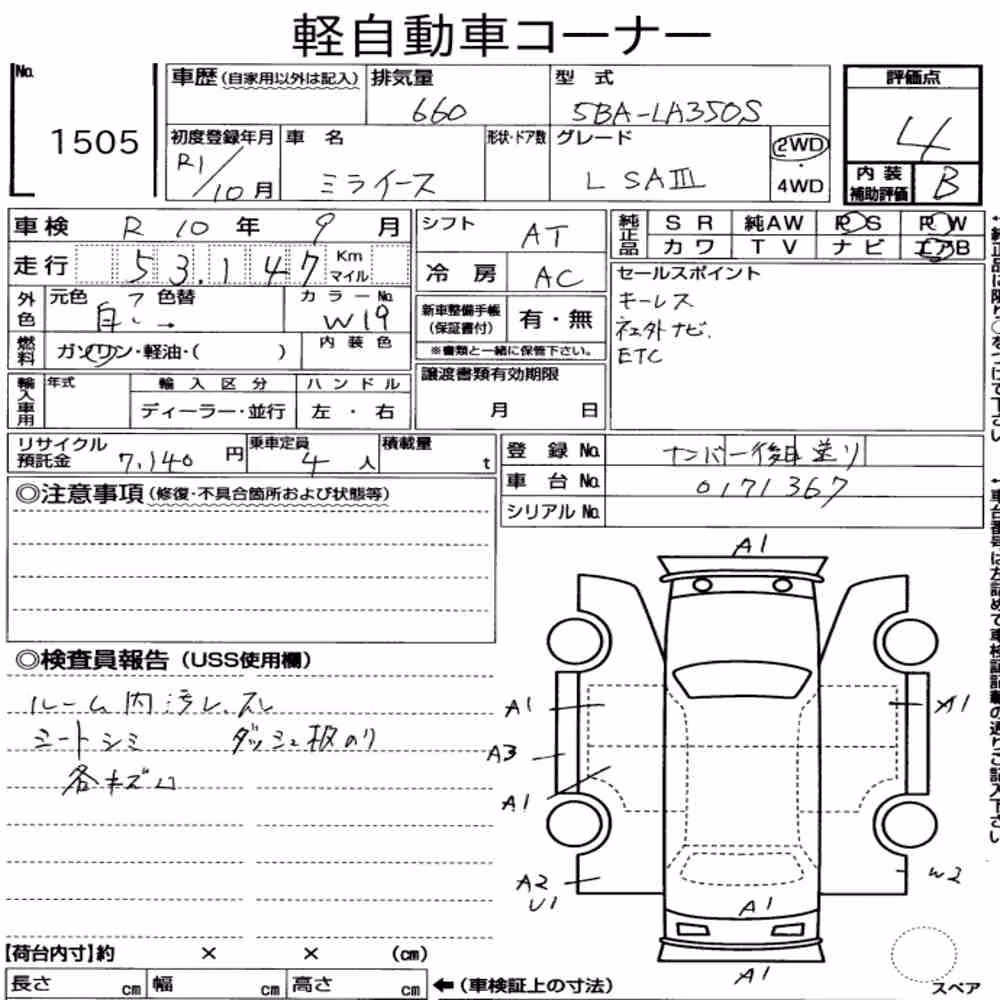 軽自動車コーナー
No. 1505
車歴(自家用以外は記入)
排気量 660
型式 5BA-LA350S
評価点 4
内装補助評価 B
初度登録年月 R1/10月
車名 ミライース
形状・ドア数
グレード L SAⅢ
2WD・4WD
車検 R10年9月
走行 53,147 Km マイル
外色 元色 白 色替
カラーNo. W19
燃料 ガソリン・軽油・( )
内装色
輸入車用 年式
輸入区分 ディーラー・並行
ハンドル 左・右
シフト AT
冷房 AC
新車整備手帳(保証書付) 有・無
※書類と一緒に保管下さい。
譲渡書類有効期限 月 日
純正品 SR 純AW PS PW
カワ TV ナビ エアB
セールスポイント
キーレス
社外ナビ.
ETC
リサイクル預託金 7,140円
乗車定員 4人
積載量 t
登録No. ナンバー後日送り
車台No. 0171367
シリアルNo.
◎注意事項(修復・不具合箇所および状態等)
◎検査員報告(USS使用欄)
ルーム内汚レ、スレ
シートシミ ダッシュ板のり
各キズ凹
A1
A1
A1
A3
A1
A2
U1
W2
A1
A1
スペア
【荷台内寸】約 × × (cm)
長さ cm 幅 cm 高さ cm ←(車検証上の寸法)
←純正品に限り○をつけて下さい
←車台番号は左詰めで車検証記載の通りご記入下さい